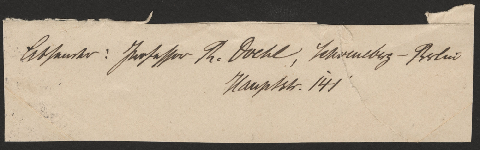 Absender: Professor R. Doehl, Schoeneberg-Berlin
Hauptstr. 141